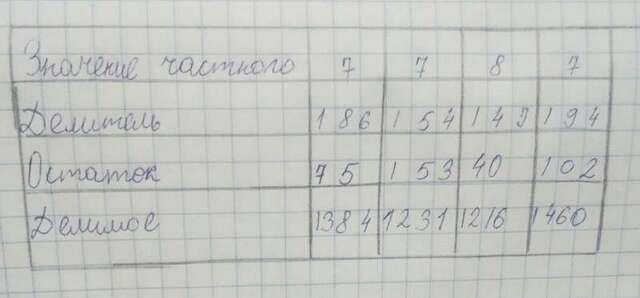 Значение частного 7 7 8 7
Делитель 186 154 194
Остаток 75 153 40 102
Делимое 1384 1231 1216 1460